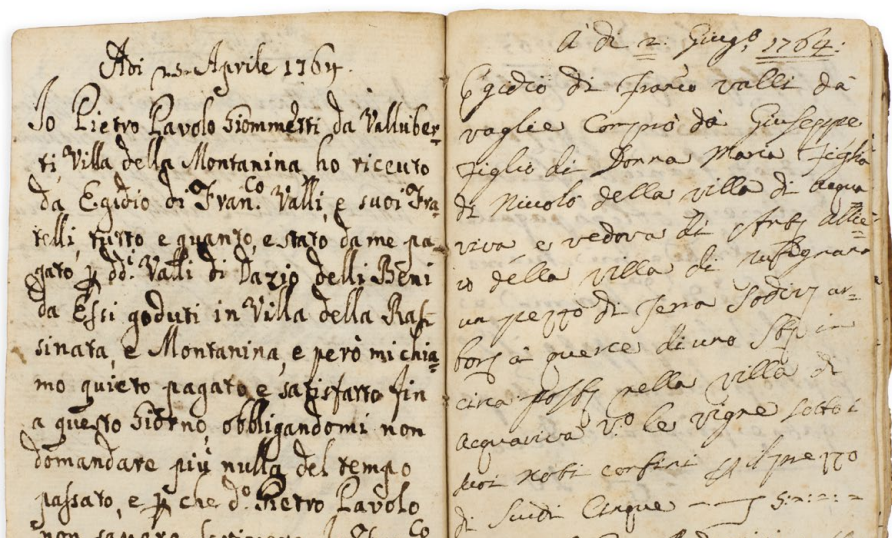 Adi 25 Aprile 1764.
Io Pietro Pavolo Giommetti da Valluber-
ti, Villa della Montanina ho riceuto
da Egidio di Fran.co Valli, e suoi Fra
telli, tutto e quanto, e stato da me pa-
gato, p ddi. Valli di Dazio delli Beni
da Essi goduti in Villa della Rass
sinata, e Montanina, e però mi chia=
mo quieto pagato, e satisfatto fin
a questo Giorno, obbligandomi non
domandare più nulla del tempo
passato, e p che do. Pietro Pavolo
non
A di 2. Giugo. 1764:
Egidio di Franco valli da
vaglie Comprò da Giuseppe
figlio di Donna Maria figlia
di Niccolò della villa di acqua
viva e vedova di
della villa di
un pezzo di Terra Sodiva ar=
à querce di uno in
circa nella villa di
Acquaviva vo. le vigne sotto i
suoi noti confini il prezzo
di Scudi Cinque — 5:=:=:=